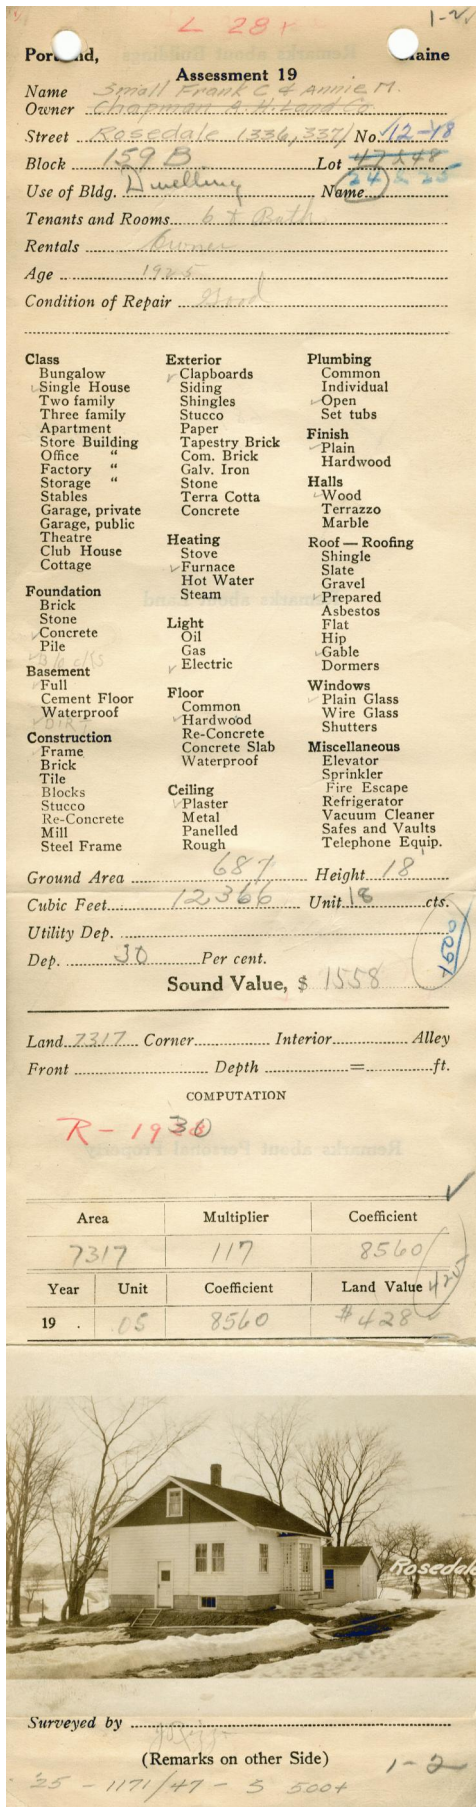 L 28+
1-2
Portland, Maine
Assessment 19
Name Small Frank C & Annie M.
Owner Chapman A. H. Land Co.
Street Rosedale 1336, 337/ No. 12-18
Block 159 B Lot 47 & 48
24 & 25
Use of Bldg. Dwelling Name
Tenants and Rooms 6 + Bath
Rentals Owner
Age 1925
Condition of Repair Good
Class
Bungalow
Single House
Two family
Three family
Apartment
Store Building
Office "
Factory "
Storage "
Stables
Garage, private
Garage, public
Theatre
Club House
Cottage
Foundation
Brick
Stone
Concrete
Pile
Blocks
Basement
Full
Cement Floor
Waterproof
DIRT
Construction
Frame
Brick
Tile
Blocks
Stucco
Re-Concrete
Mill
Steel Frame
Exterior
Clapboards
Siding
Shingles
Stucco
Paper
Tapestry Brick
Com. Brick
Galv. Iron
Stone
Terra Cotta
Concrete
Heating
Stove
Furnace
Hot Water
Steam
Light
Oil
Gas
Electric
Floor
Common
Hardwood
Re-Concrete
Concrete Slab
Waterproof
Ceiling
Plaster
Metal
Panelled
Rough
Plumbing
Common
Individual
Open
Set tubs
Finish
Plain
Hardwood
Halls
Wood
Terrazzo
Marble
Roof — Roofing
Shingle
Slate
Gravel
Prepared
Asbestos
Flat
Hip
Gable
Dormers
Windows
Plain Glass
Wire Glass
Shutters
Miscellaneous
Elevator
Sprinkler
Fire Escape
Refrigerator
Vacuum Cleaner
Safes and Vaults
Telephone Equip.
Ground Area 687 Height 18
Cubic Feet 12366 Unit 18 cts.
Utility Dep.
Dep. 30 Per cent.
Sound Value, $ 1558
Land 7317 Corner Interior Alley
Front Depth = ft.
COMPUTATION
R-1930
Area Multiplier Coefficient
7317 117 8560
Year Unit Coefficient Land Value
19 .05 8560 $428
425
Rosedale
Surveyed by
(Remarks on other Side)
1-2
'25 - 1171/47 - 5 500+